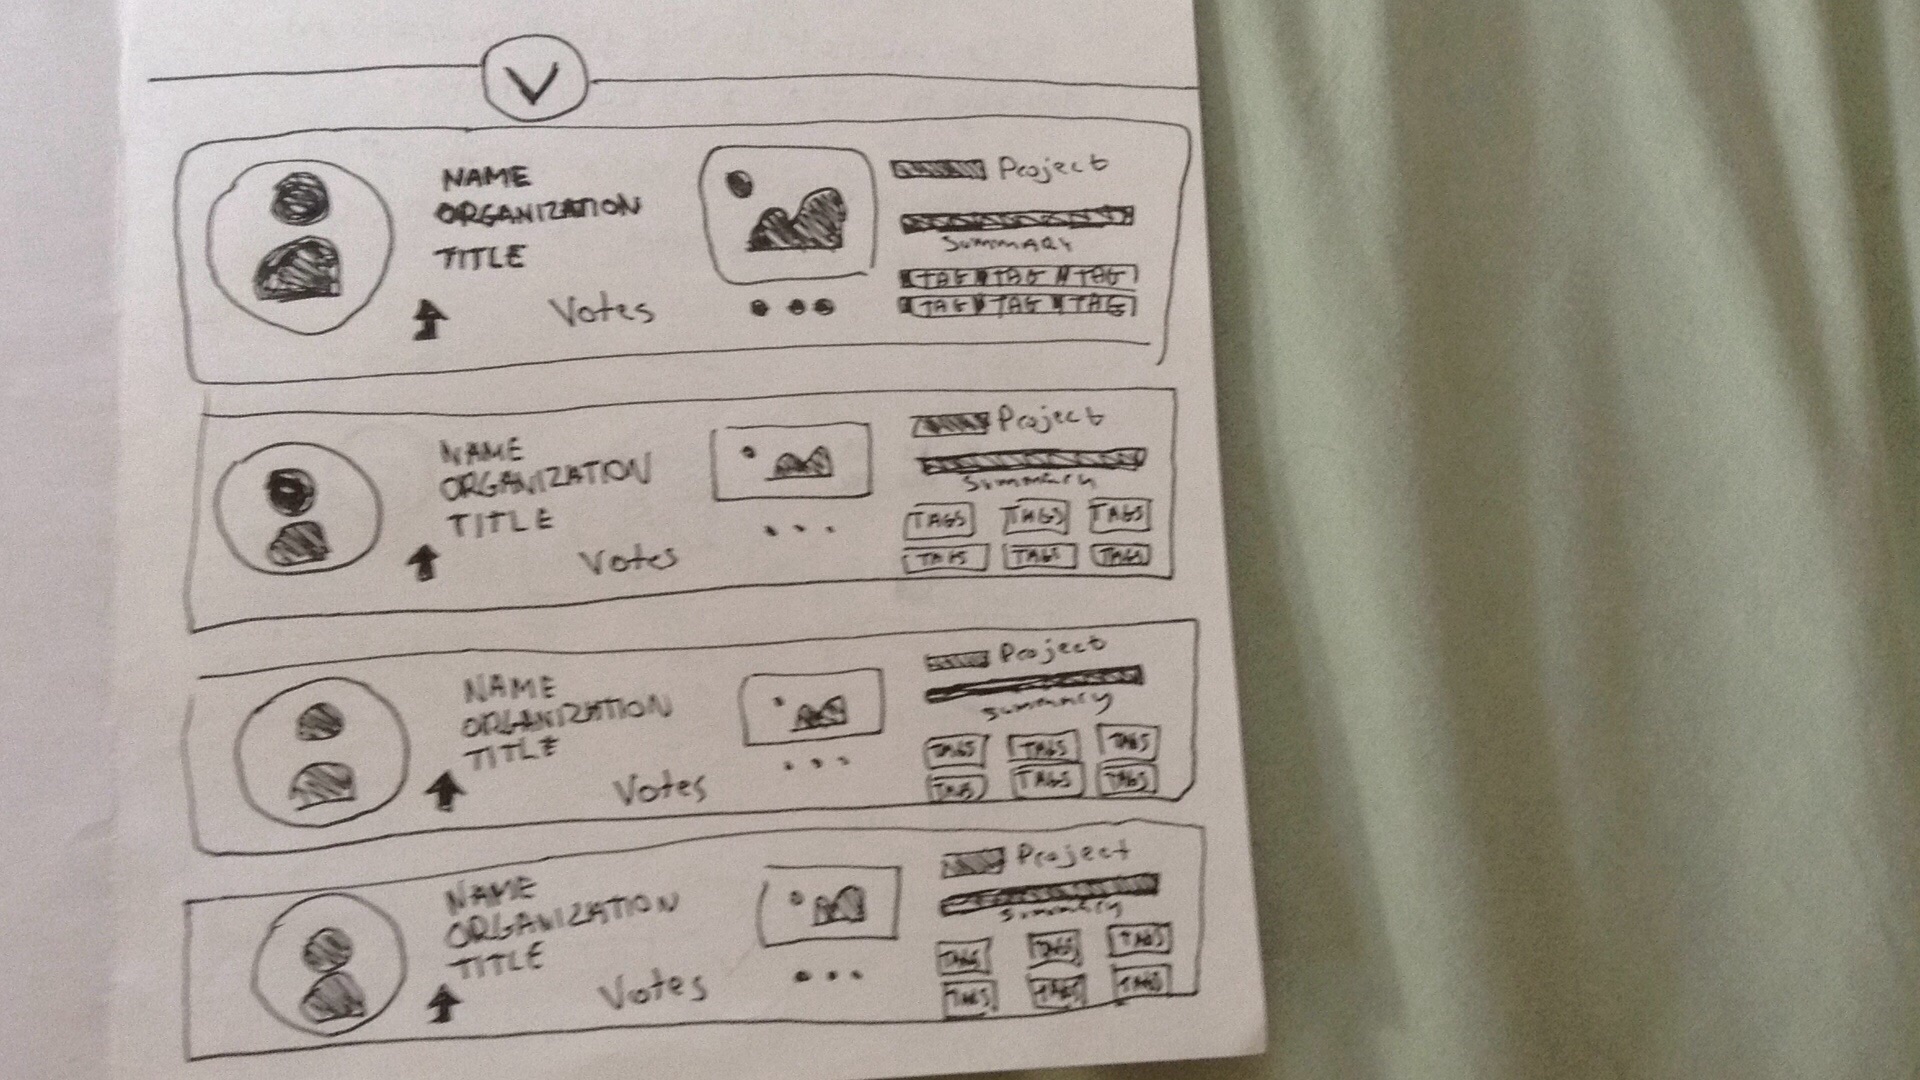 V
NAME
ORGANIZATION
TITLE
Votes
Project
SUMMARY
TAG TAG TAG
TAG TAG TAG
NAME
ORGANIZATION
TITLE
Votes
Project
Summary
TAGS TAGS TAGS
TAGS TAGS TAGS
NAME
ORGANIZATION
TITLE
Votes
Project
Summary
TAGS TAGS TAGS
TAGS TAGS TAGS
NAME
ORGANIZATION
TITLE
Votes
Project
Summary
TAGS TAGS TAGS
TAGS TAGS TAGS